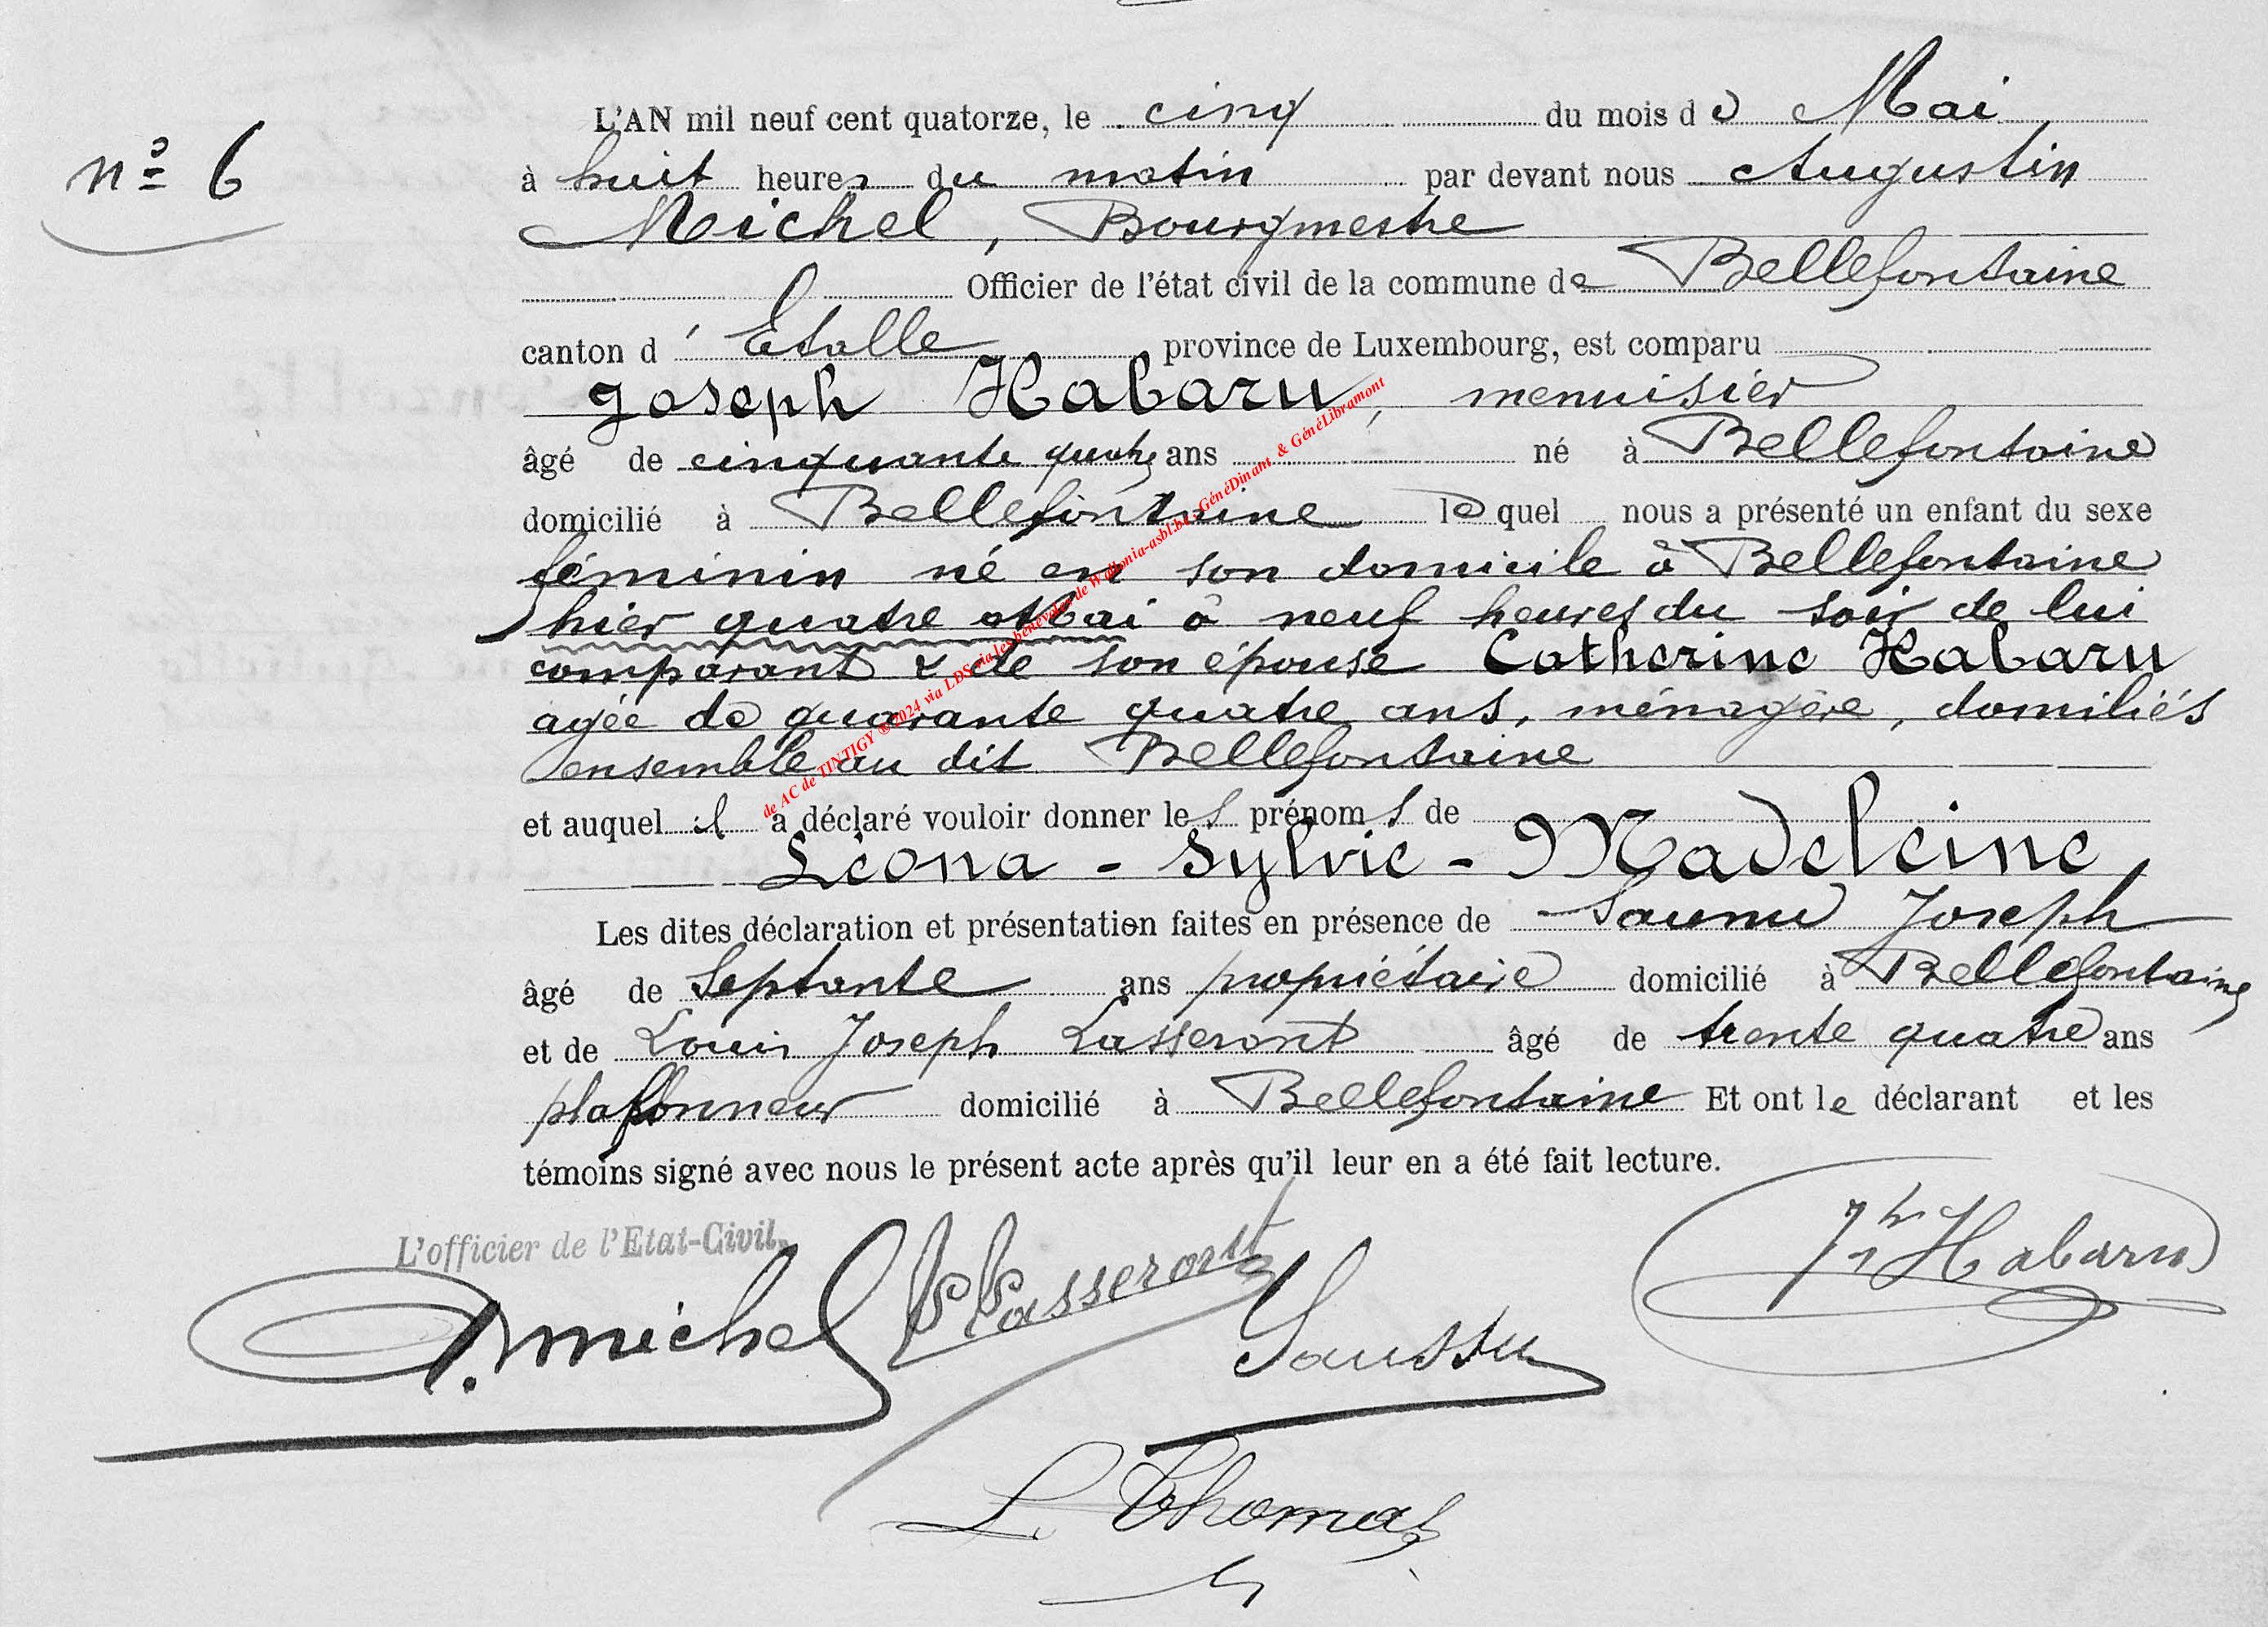 n° 6
L'AN mil neuf cent quatorze, le cinq du mois de Mai
à huit heures du matin par devant nous Augustin
Michel, Bourgmestre
Officier de l'état civil de la commune de Bellefontaine
canton d' Etalle province de Luxembourg, est comparu
Joseph Habaru, menuisier
âgé de cinquante quatre ans né à Bellefontaine
domicilié à Bellefontaine lequel nous a présenté un enfant du sexe
féminin né en son domicile à Bellefontaine
hier quatre Mai à neuf heures du soir de lui
comparant & de son épouse Catherine Habaru
agée de quarante quatre ans, ménagère, domiliés
ensemble au dit Bellefontaine
et auquel il a déclaré vouloir donner les prénoms de
Léona - Sylvie - Madeleine
Les dites déclaration et présentation faites en présence de Joseph
âgé de Septante ans propriétaire domicilié à Bellefontaine
et de Louis Joseph Lasseront âgé de trente quatre ans
plafonneur domicilié à Bellefontaine Et ont le déclarant et les
témoins signé avec nous le présent acte après qu'il leur en a été fait lecture.
L'officier de l'Etat-Civil,
Jh Habaru
A. Michel Lasseront Saussu
L. Thomas
de AC de TINTIGY ® 2024 via LDS via les bénévoles de Wallonia-asbl.be, GénéDinant & GénéLibramont